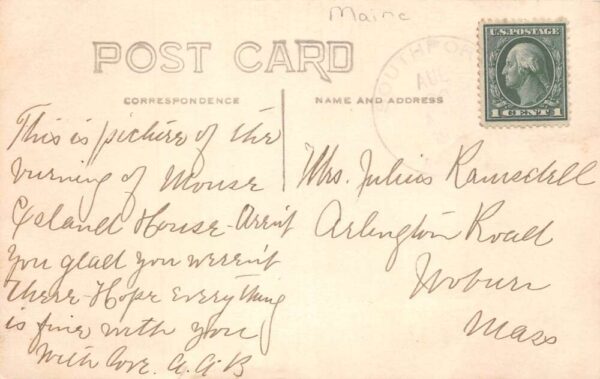 Maine
POST CARD
CORRESPONDENCE
NAME AND ADDRESS
SOUTHPOR
AUG
U.S. POSTAGE
1 CENT 1
This is picture of the
burning of Mouse
Island House - Aren't
you glad you weren't
there - Hope everything
is fine with you
With love. A.A.B
Mrs. Julius Ramsdell
Arlington Road
Woburn
Mass